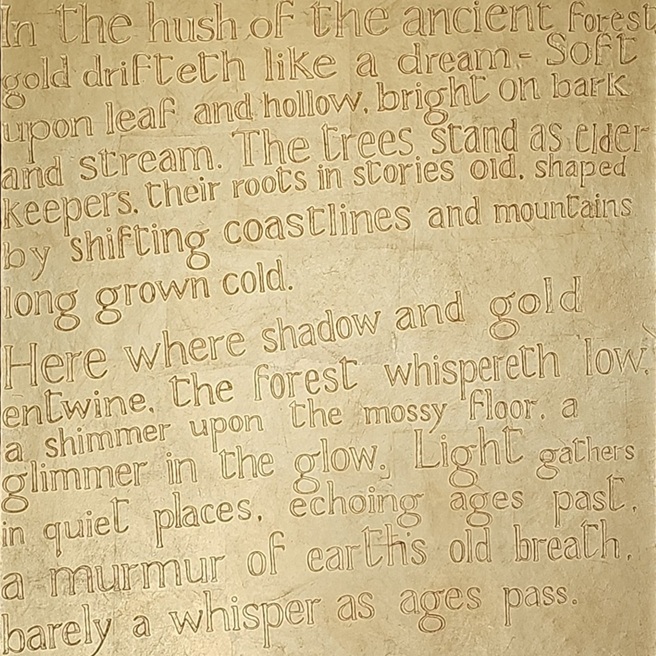 In the hush of the ancient forest,
gold drifteth like a dream- Soft
upon leaf and hollow, bright on bark
and stream. The trees stand as elder
keepers, their roots in stories old, shaped
by shifting coastlines and mountains
long grown cold.
Here where shadow and gold
entwine, the forest whispereth low,
a shimmer upon the mossy floor, a
glimmer in the glow. Light gathers
in quiet places, echoing ages past,
a murmur of earth's old breath,
barely a whisper as ages pass.